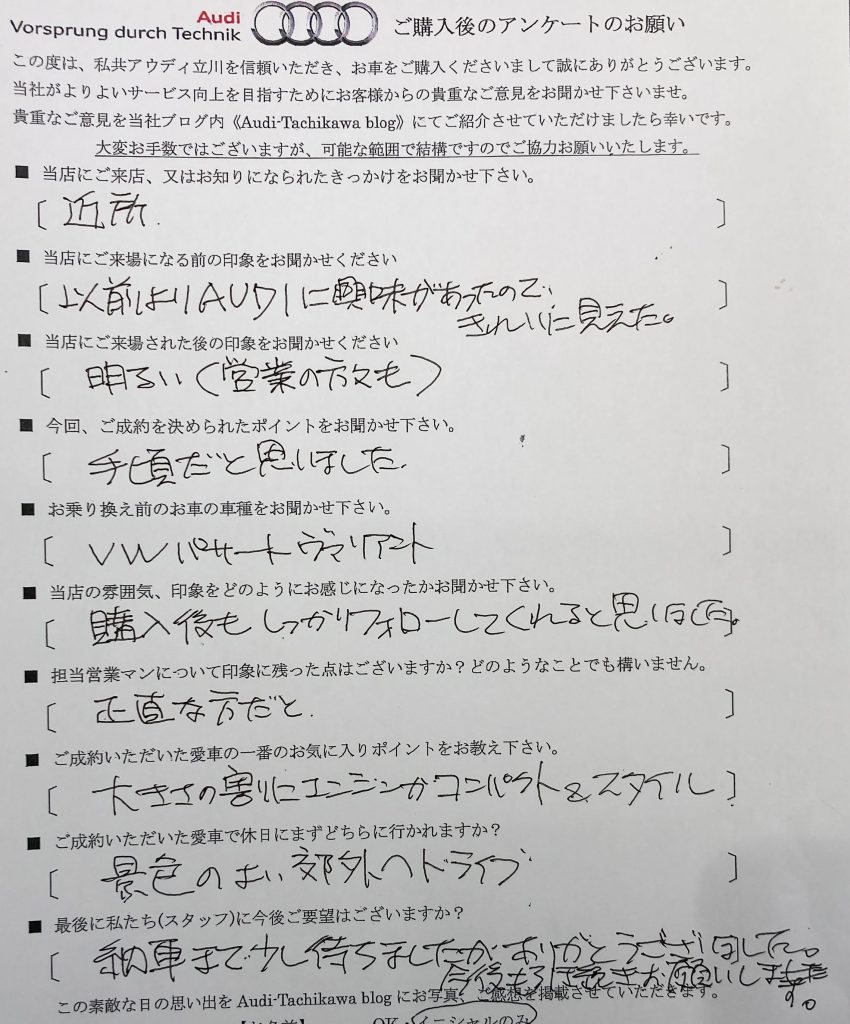 Audi
Vorsprung durch Technik
ご購入後のアンケートのお願い
この度は、私共アウディ立川を信頼いただき、お車をご購入くださいまして誠にありがとうございます。
当社がよりよいサービス向上を目指すためにお客様からの貴重なご意見をお聞かせ下さいませ。
貴重なご意見を当社ブログ内《Audi-Tachikawa blog》にてご紹介させていただけましたら幸いです。
大変お手数ではございますが、可能な範囲で結構ですのでご協力お願いいたします。
■ 当店にご来店、又はお知りになられたきっかけをお聞かせ下さい。
[ 近所. ]
■ 当店にご来場になる前の印象をお聞かせください
[ 以前よりAUDIに興味があったので、 ]
きれいに見えた。
■ 当店にご来場された後の印象をお聞かせください
[ 明るい(営業の方々も) ]
■ 今回、ご成約を決められたポイントをお聞かせ下さい。
[ 手頃だと思いました. ]
■ お乗り換え前のお車の車種をお聞かせ下さい。
[ VWパサートヴァリアント ]
■ 当店の雰囲気、印象をどのようにお感じになったかお聞かせ下さい。
[ 購入後もしっかりフォローしてくれると思いました。 ]
■ 担当営業マンについて印象に残った点はございますか？どのようなことでも構いません。
[ 正直な方だと. ]
■ ご成約いただいた愛車の一番のお気に入りポイントをお教え下さい。
[ 大きさの割にエンジンがコンパクト&スタイル ]
■ ご成約いただいた愛車で休日にまずどちらに行かれますか？
[ 景色のよい郊外へドライブ ]
■ 最後に私たち(スタッフ)に今後ご要望はございますか？
[ 納車まで少し待ちましたが、ありがとうございました。
今後も引き続きお願いします。
この素敵な日の思い出を Audi-Tachikawa blog にお写真、ご感想を掲載させていただきます。
OK・イニシャルのみ